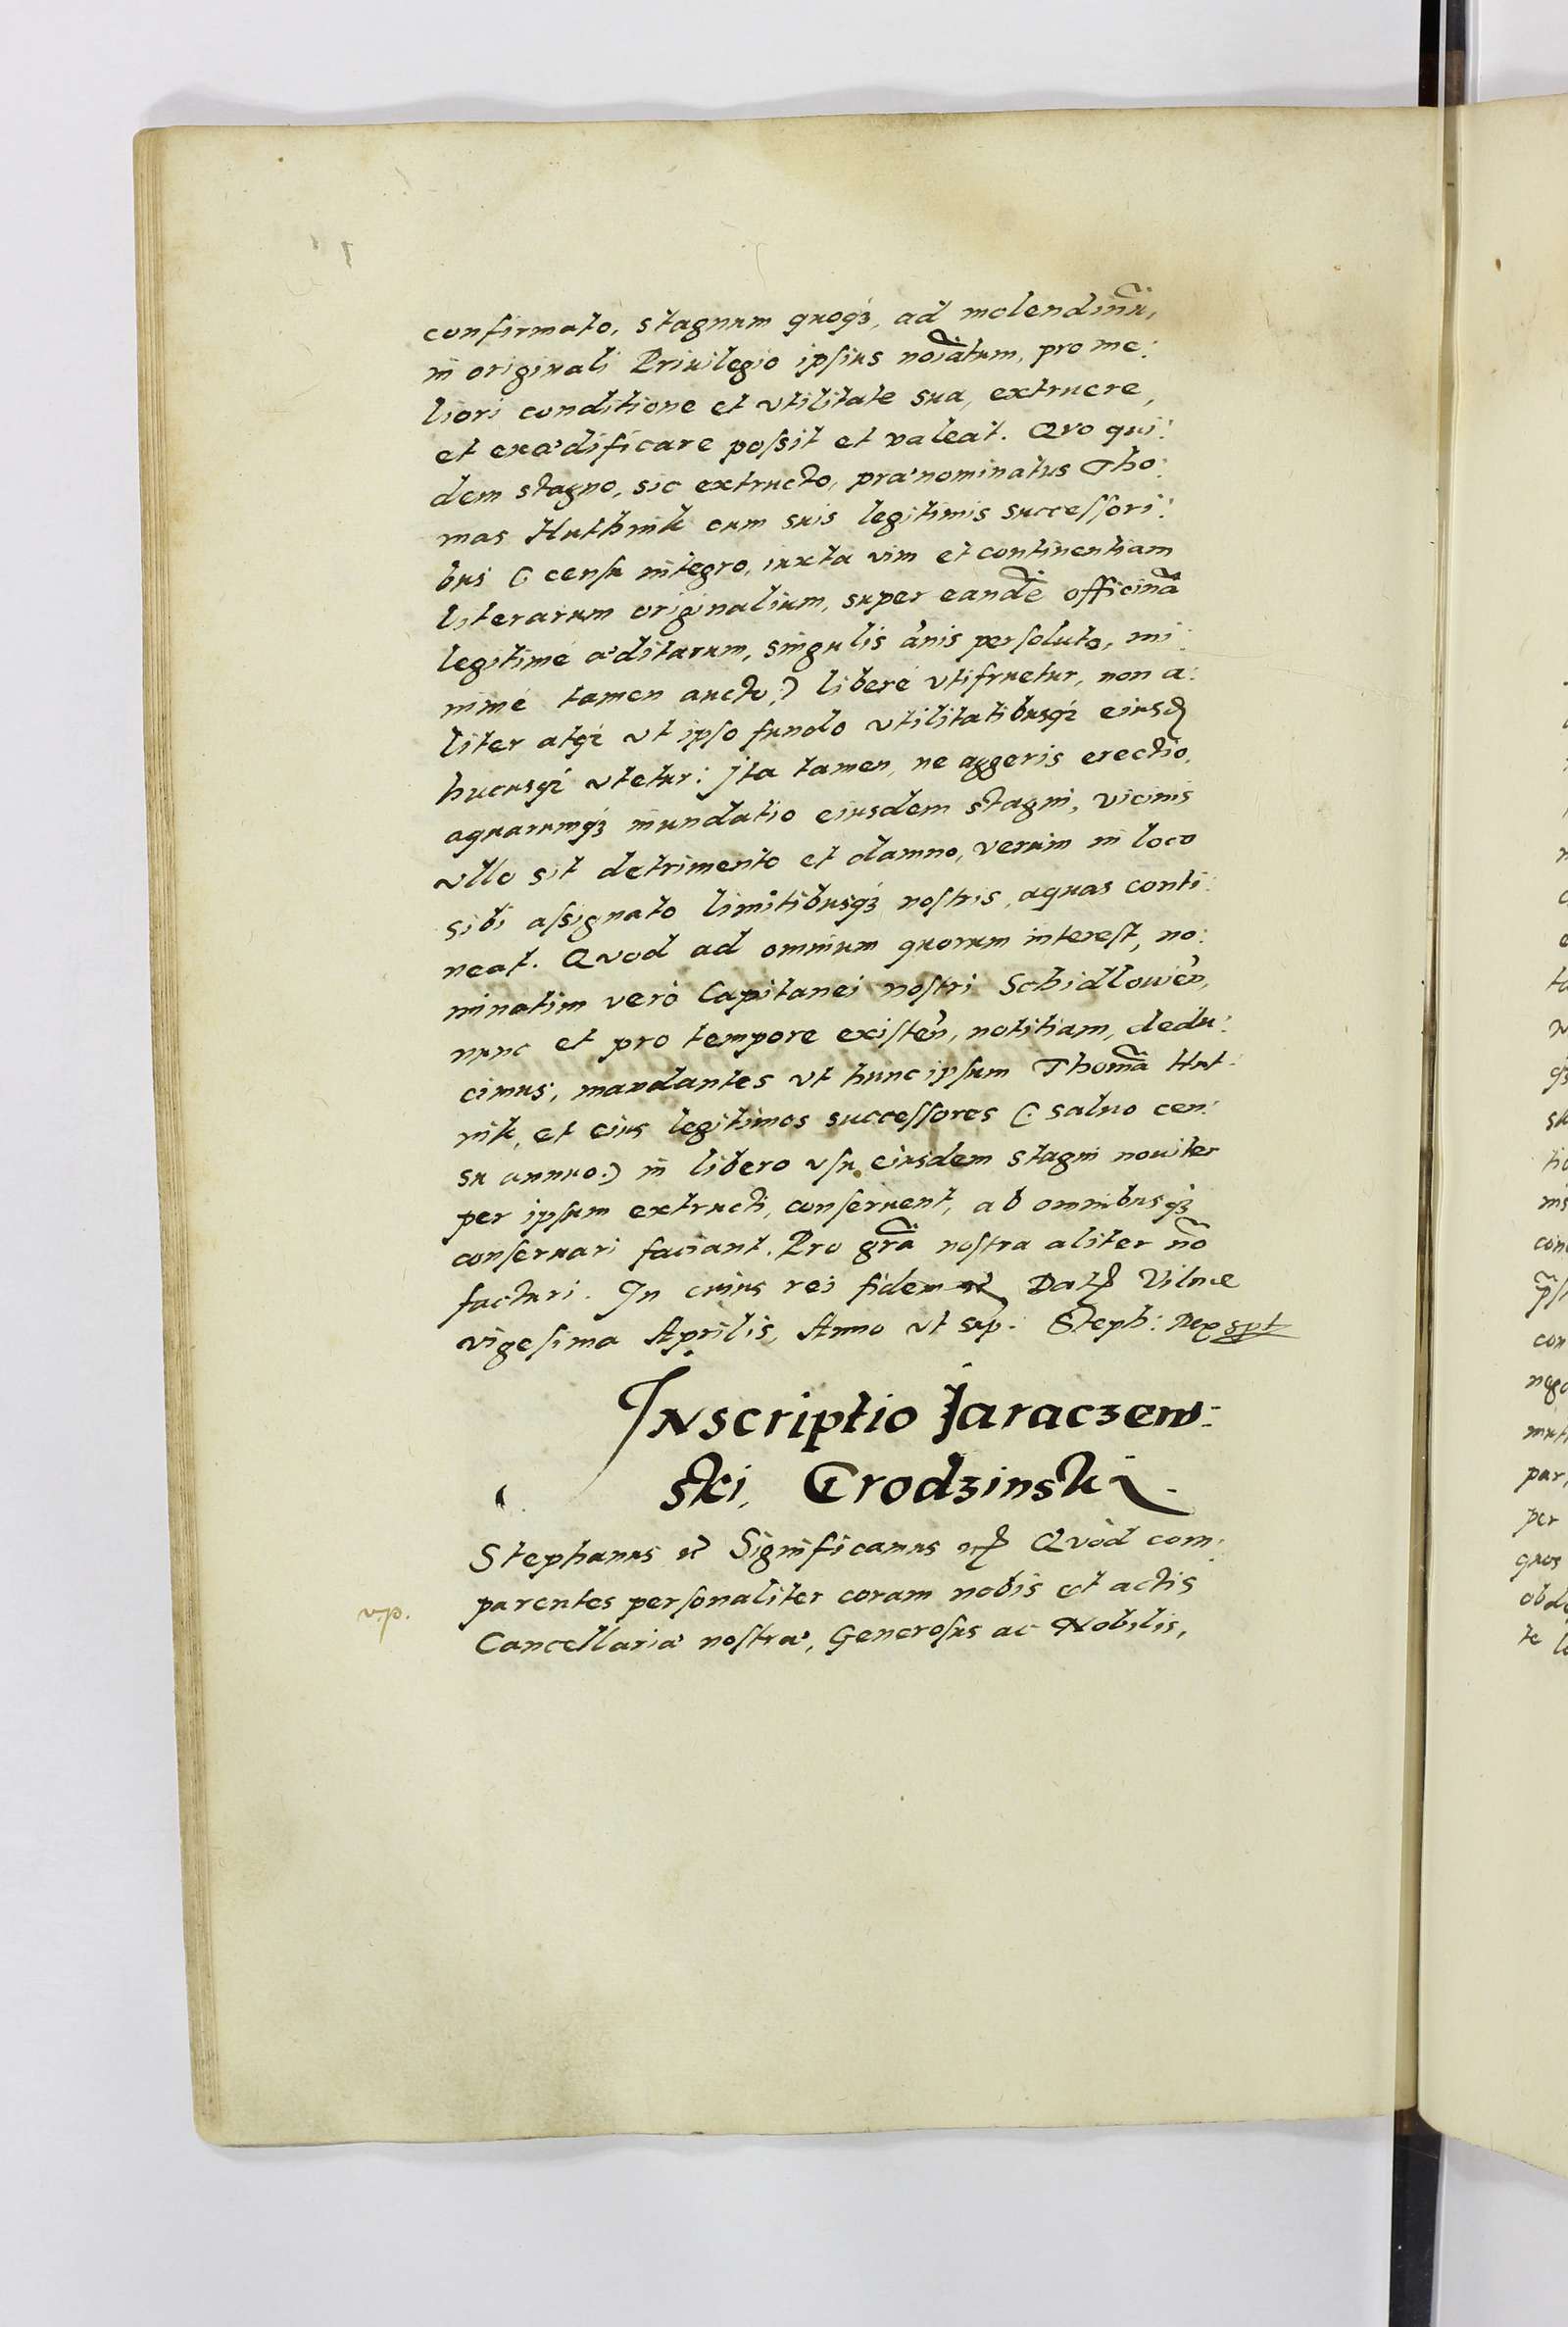 confirmato, stagnum quoqȝ, ad molendinũ,
in originali Priuilegio ipsius noiãtum, pro me:
liori conditione et vtilitate sua, extruere,
et exædificare possit et valeat. Qvo qui:
dem stagno, sic extructo, prænominatus Tho:
mas Huthnik cum suis legitimis successori:
bus (: censu integro, iuxta vim et continentiam
literarum originalium, super eandẽ officinã
legitimé æditarum, singulis ãnis persoluto, mi:
nimé tamen aucto,:) liberé vtifruetur, non a:
liter atqȝ vt ipso fundo vtilitatibusqȝ eiusđ
hucusqȝ vtetur: Jta tamen, ne aggeris erectio,
aquarumqȝ inundatio eiusdem stagni, vicinis
vllo sit detrimento et damno, verùm in loco
sibi assignato limitibusqȝ nostris, aquas conti:
neat. Qvod ad omnium quorum interest, no:
minatim verò Capitanei nostri Schidlowieñ,
nunc et pro tempore existeñ, notitiam, dedu:
cimus, mandantes vt hunc ipsum Thomã Hut:
nik, et eius legitimos successores (: saluo cen:
su annuo:) in libero vsu eiusdem stagni nouiter
per ipsum extructi, conseruent, ab omnibusqȝ
conseruari faciant. Pro grã nostra aliter nõ
facturi. In cuius rei fidem Datꝭ Vilnæ
vigesima Aprilis, Anno vt sup. Steph: Rex spt
Jnscriptio Jaraczew:
ski, Grodzinski.
Stephanus Significamus Qvòd com:
parentes personaliter coram nobis et actis
v.p.
Cancellariæ nostræ, Generosus ac Nobilis,